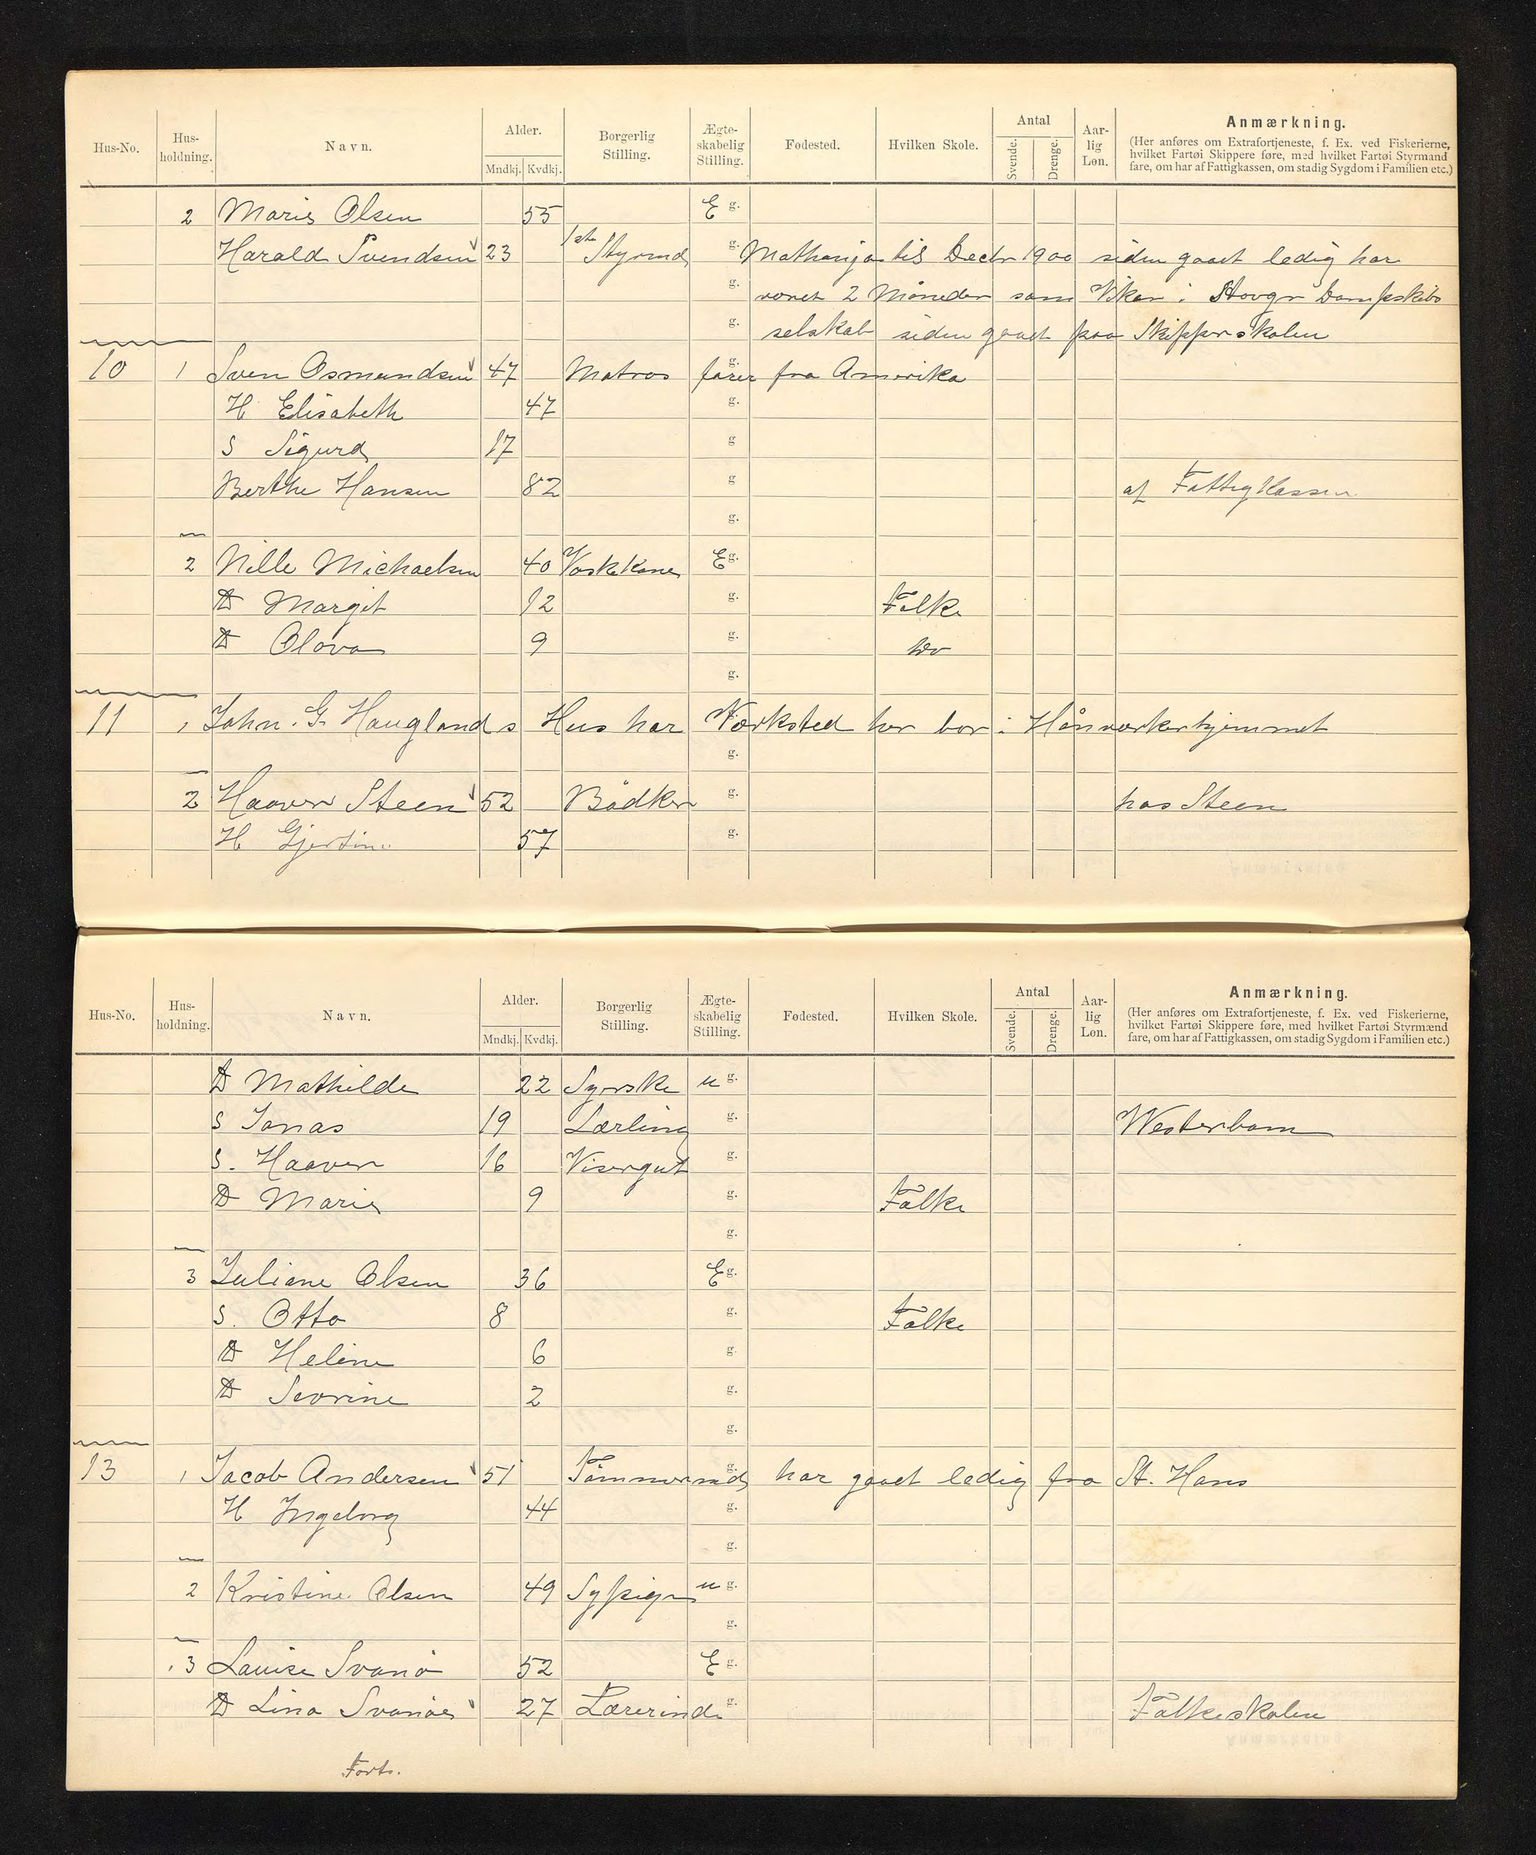 Hus-No. Hus-holdning. Navn. Alder. Mndkj. Kvdkj. Borgerlig Stilling. Ægte-skabelig Stilling. Fødested. Hvilken Skole. Antal Svende. Drenge. Aar-lig Løn. Anmærkning.
(Her anføres om Extrafortjeneste, f. Ex. ved Fiskerierne, hvilket Fartøi Skippere føre, med hvilket Fartøi Styrmænd fare, om har af Fattigkassen, om stadig Sygdom i Familien etc.)
2 Marie Olsen 55 E g.
Harald Svendsen 23 1ste Styrmd g. til Decbr 1900 siden gaaet ledig har
været 2 Måneder som Vikar i Stavgr Dampskibs
selskab siden gaaet paa Skipperskolen
10 1 Sven Osmundsen 47 Matros g. farer fra Amerika
H Elisabeth 47 g.
S Sigurd 17 g
Berthe Hansen 82 g af Fattigkassen
g.
2 Nille Michaelsen 40 Vaskekone E g.
D Margit 12 g. Folke
D Olava 9 g. do
g.
11 1 John. G. Hauglands Hus har Værksted her bor i Håndværkerhjemmet
g.
2 Haaver Steen 52 Bödker g. hos Steen
H Gjertine 57 g.
Hus-No. Hus-holdning. Navn. Alder. Mndkj. Kvdkj. Borgerlig Stilling. Ægte-skabelig Stilling. Fødested. Hvilken Skole. Antal Svende. Drenge. Aar-lig Løn. Anmærkning.
(Her anføres om Extrafortjeneste, f. Ex. ved Fiskerierne, hvilket Fartøi Skippere føre, med hvilket Fartøi Styrmænd fare, om har af Fattigkassen, om stadig Sygdom i Familien etc.)
D Mathilde 22 Syerske u g.
S Jonas 19 Lærling g. Westerbom
S. Haaver 16 Visergut g.
D Marie 9 g. Folke
g.
3 Juliane Olsen 36 E g.
S. Otto 8 g. Folke
D Heline 6 g.
D Sevrine 2 g.
g.
13 1 Jacob Andersen 51 Tömmermd g. har gaaet ledig fra St. Hans
H Ingeborg 44 g.
g.
2 Kristine Olsen 49 Sypige u g.
g.
3 Lauise Svanö 52 E g.
D Lina Svanöe 27 Lærerinde g. Folkeskolen
Forts.